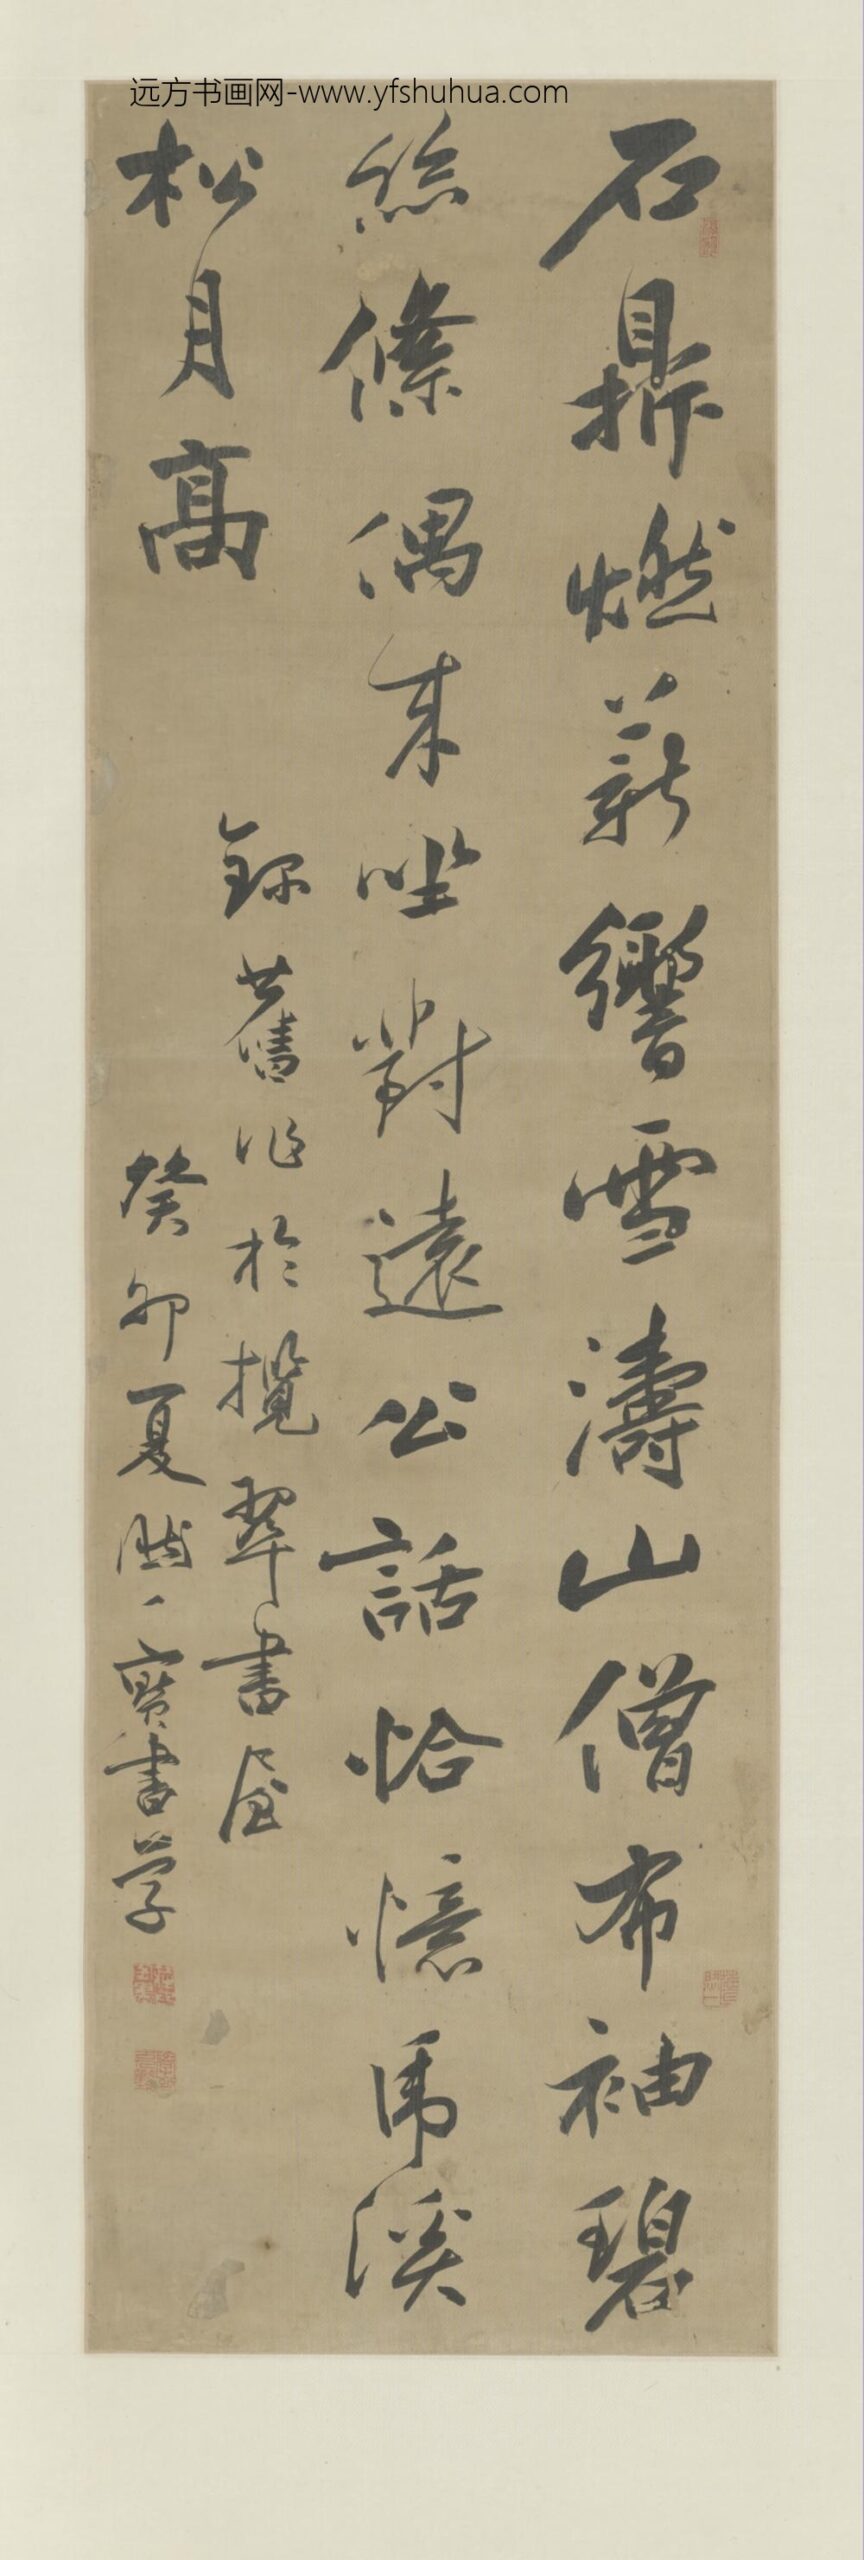 远方书画网-www.yfshuhua.com
石鼎燃薪響雪濤山僧布袖碧
絲絛偶来坐對遠公話恰憶虎溪
松月高
錄舊作於攬翠書屋
癸卯夏 書